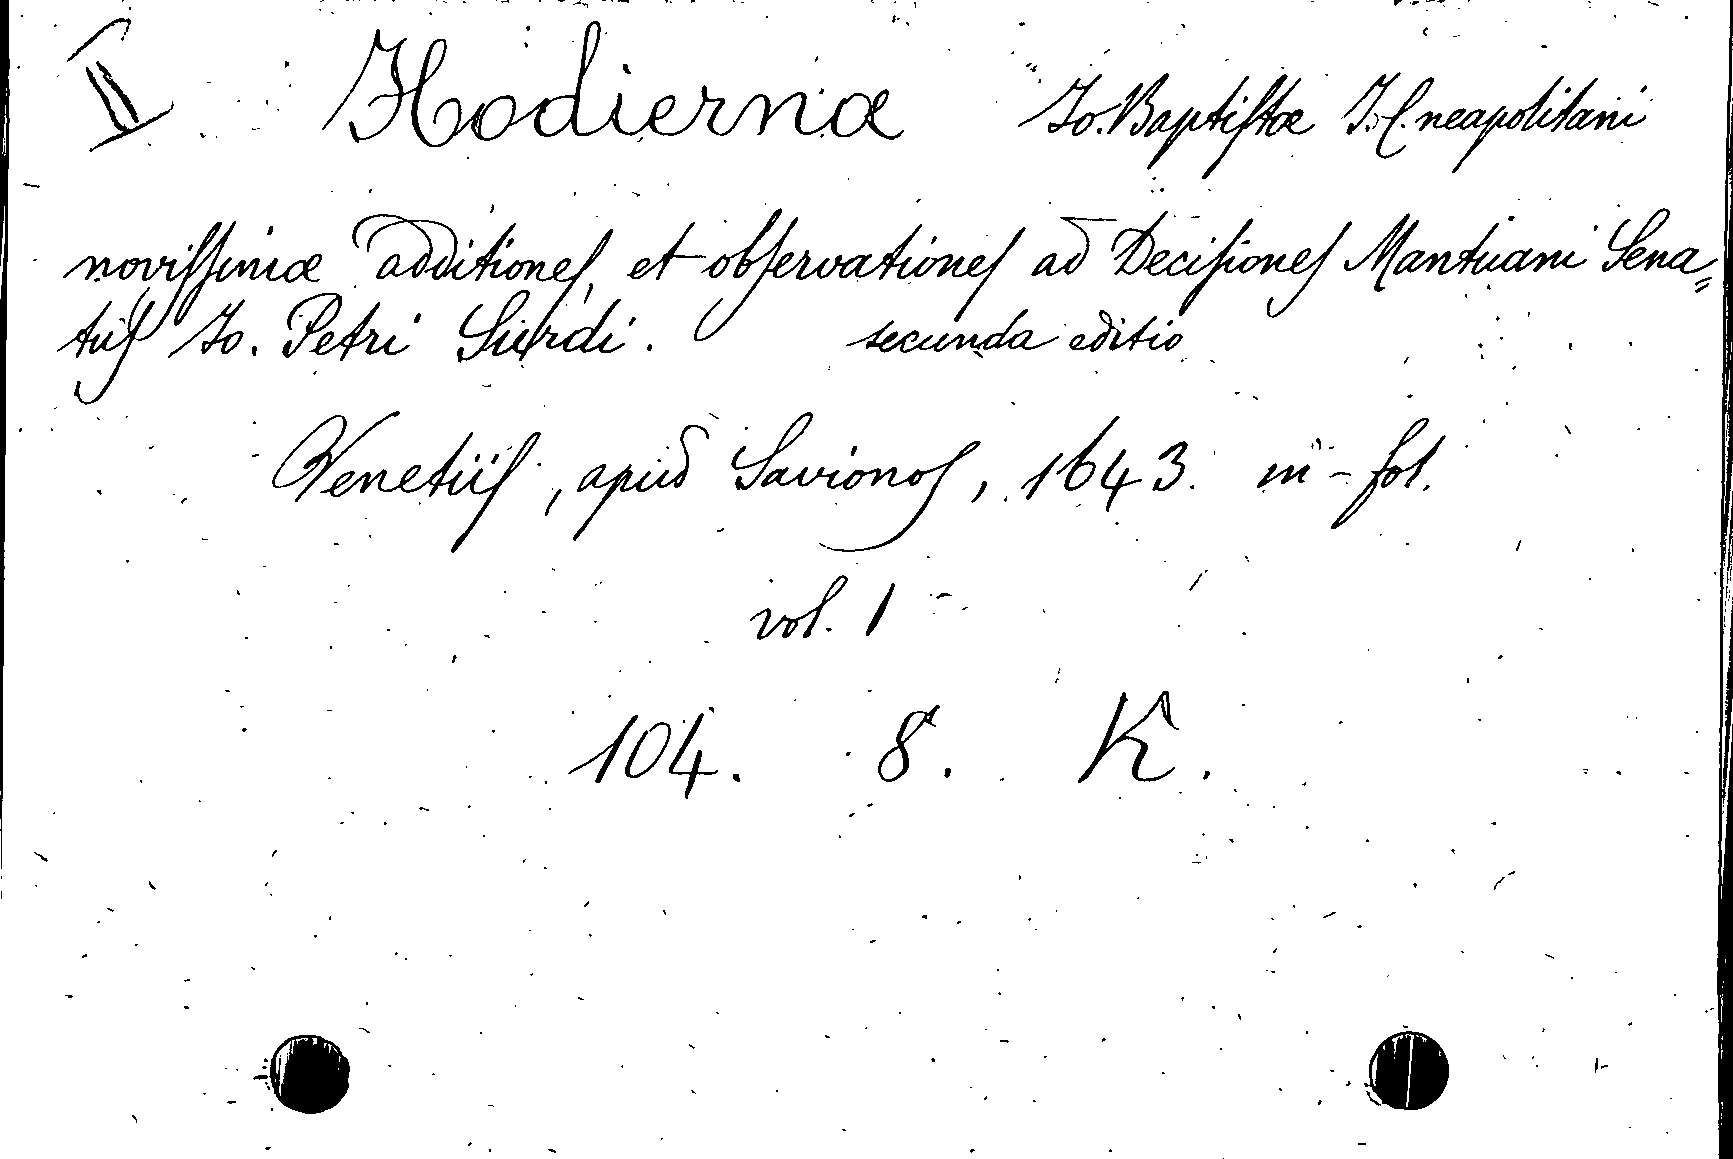 II Hodiernæ Jo. Baptiſtæ J. C. neapolitani
noviſſimæ additioneſ, et obſervationeſ ad Deciſioneſ Mantuani Sena=
tuſ Jo. Petri Surdi. secunda editio
Venetiiſ, apud Savionoſ, 1643. in-fol.
vol. 1
104. 8. K.